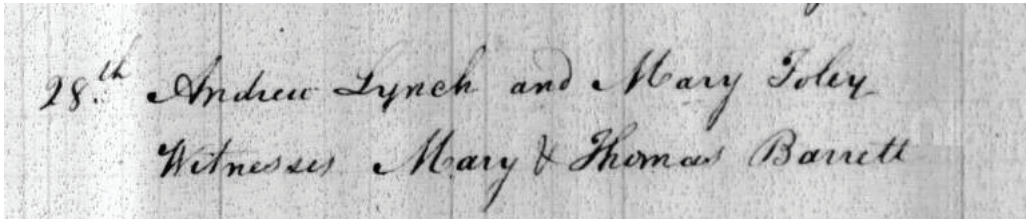 28.th Andrew Lynch and Mary Foley
Witnesses Mary & Thomas Barrett